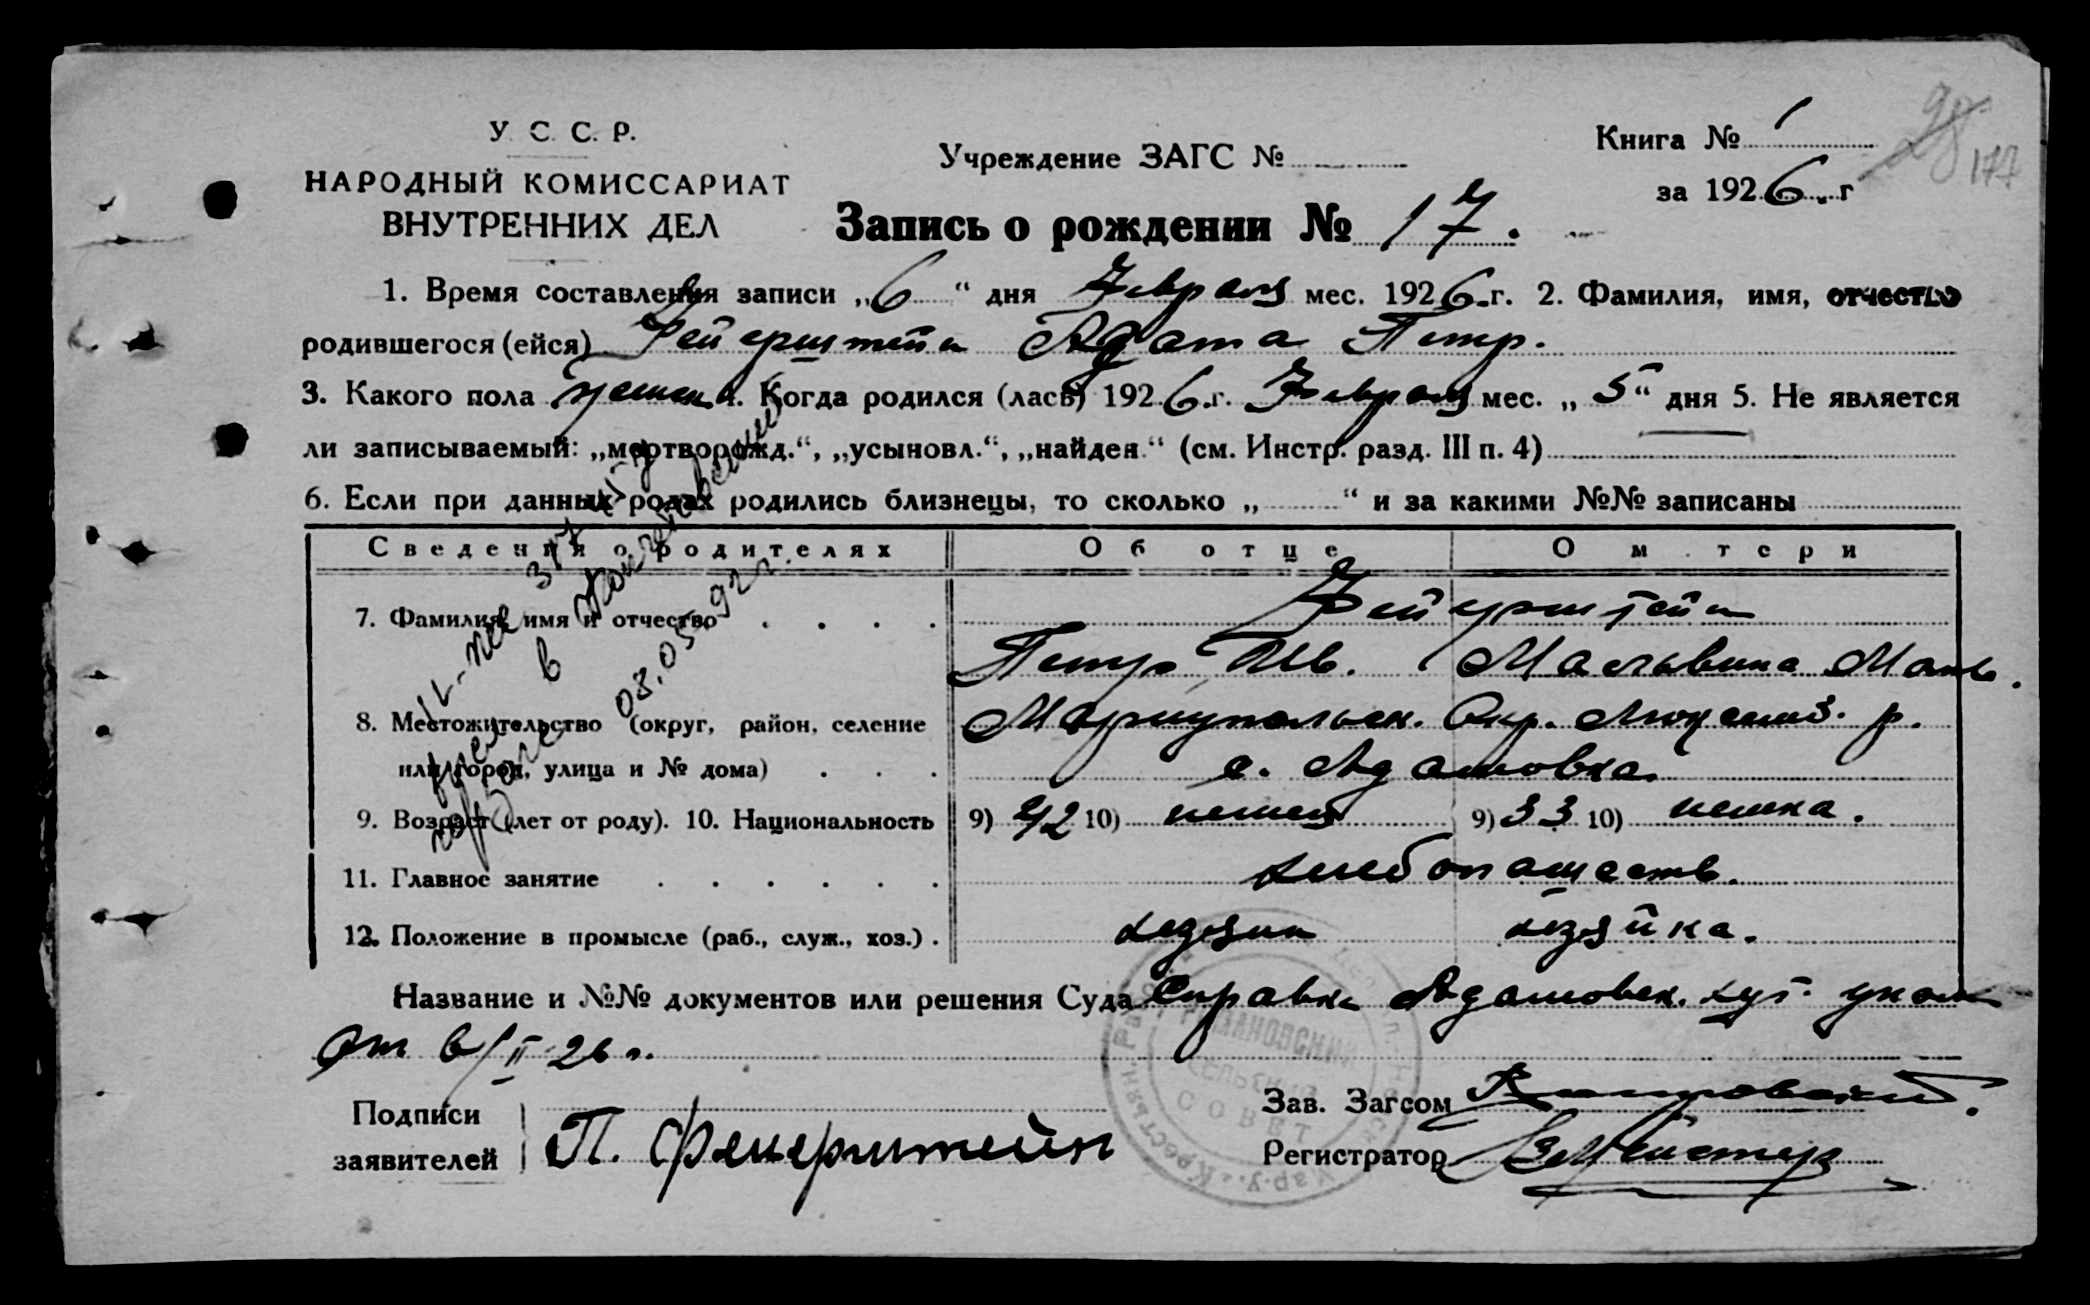 У. С. С. Р.
НАРОДНЫЙ КОМИССАРИАТ
ВНУТРЕННИХ ДЕЛ
Учреждение ЗАГС №
Книга № 1
за 1926 г
28
177
Запись о рождении № 17.
1. Время составления записи „6“ дня Февраля мес. 1926 г. 2. Фамилия, имя, отчество
родившегося (ейся) Фейерштейн Агата Петр.
3. Какого пола женск 4. Когда родился (лась) 1926 г. Февраля мес. „5“ дня 5. Не является
ли записываемый: „мертворожд.“, „усыновл.“, „найден.“ (см. Инстр. разд. III п. 4)
6. Если при данных родах родились близнецы, то сколько „ “ и за какими №№ записаны
Сведения о родителях Об отце О м тери
7. Фамилия, имя и отчество Фейерштейн
Петр Ив. Мальвина Матв.
8. Местожительство (округ, район, селение Мариупольск. Окр. Люксемб. р.
или город, улица и № дома) с. Адамовка.
9. Возраст (лет от роду). 10. Национальность 9) 42 10) немец 9) 33 10) немка.
11. Главное занятие хлебопашеств.
12. Положение в промысле (раб., служ., хоз.) хозяин хозяйка.
Название и №№ документов или решения Суда Справка Адамовск. хут.
от 6/II 26 г.
Подписи
заявителей П. Фейерштейн
Зав. Загсом
Регистратор
в
03.03.92 г.
СЕЛЬСКИЙ
СОВЕТ